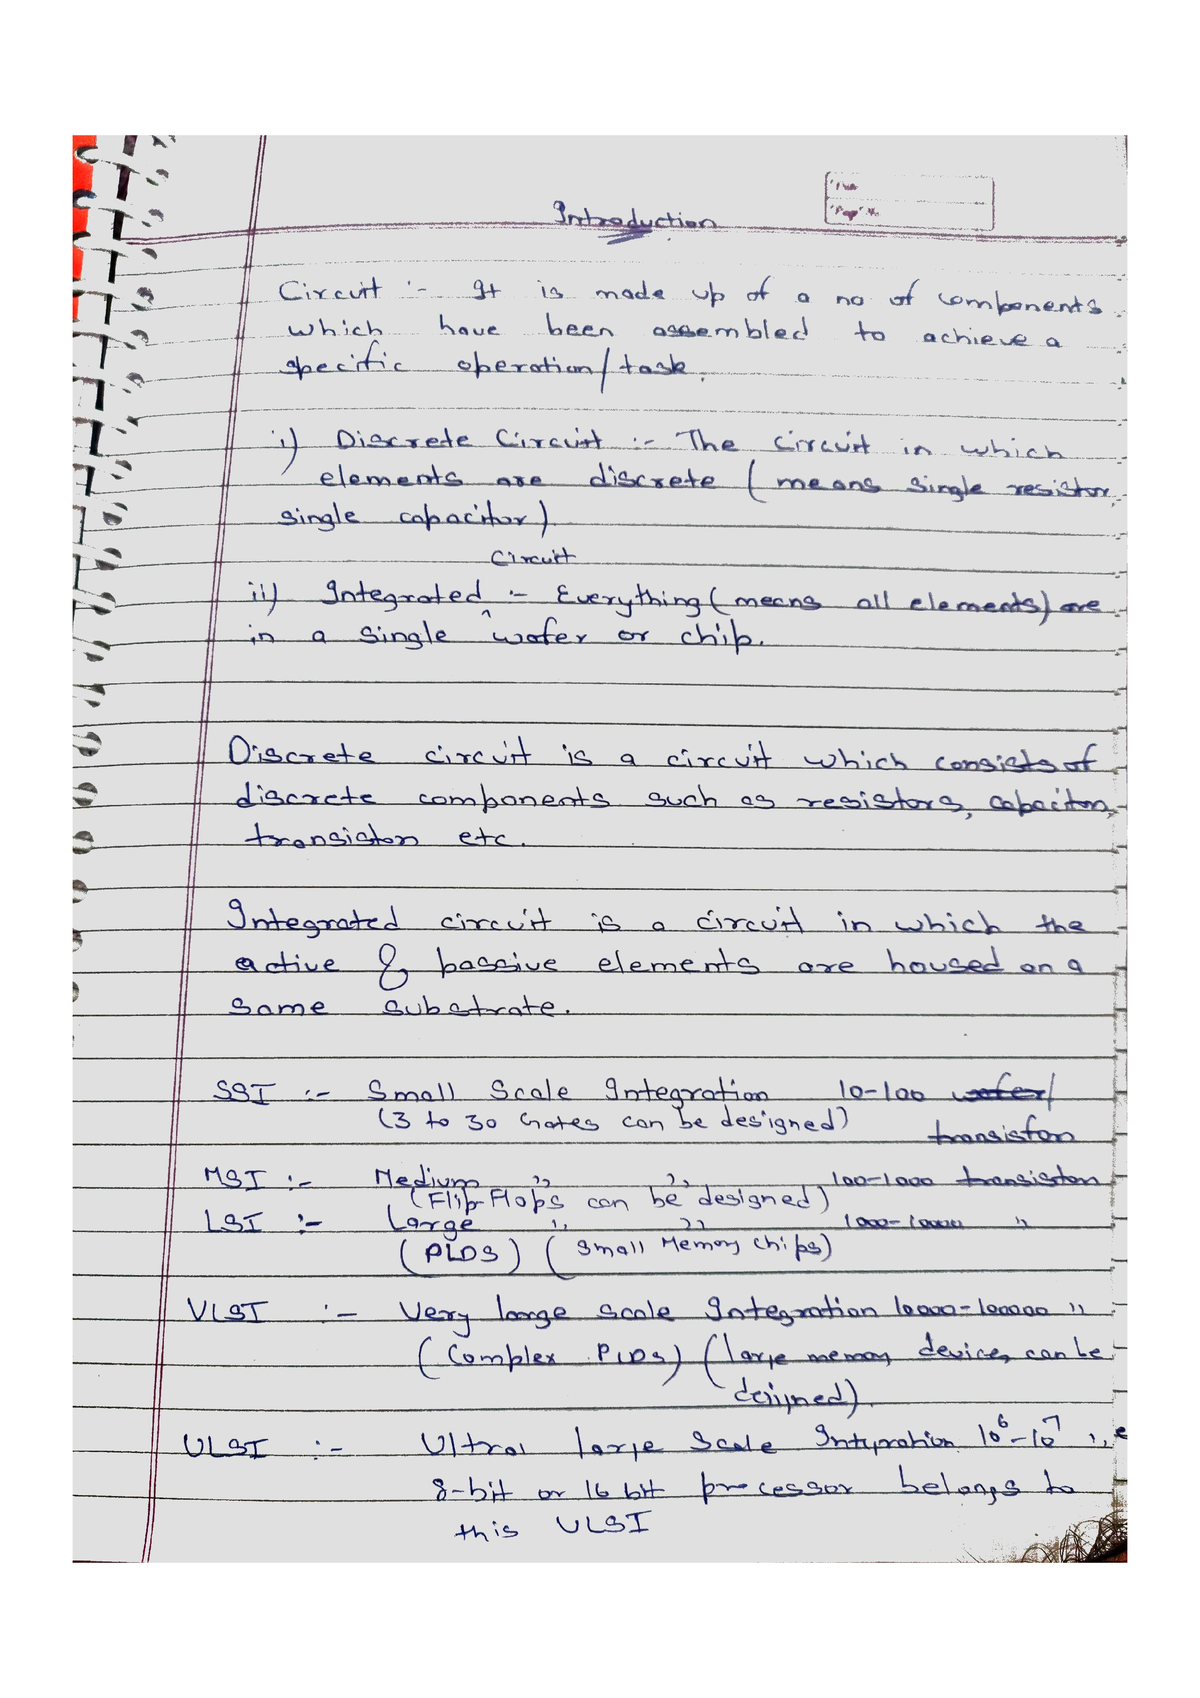 Introduction
Page No.
Circuit :- It is made up of a no of components
which have been assembled to achieve a
specific operation/task.
i) Discrete Circuit :- The circuit in which
elements are discrete (means single resistor,
single capacitor)
Circuit
ii) Integrated ^ :- Everything (means all elements) are
in a single wafer or chip.
Discrete circuit is a circuit which consists of
discrete components such as resistors, capacitors,
transistors etc.
Integrated circuit is a circuit in which the
active & passive elements are housed on a
same substrate.
SSI :- Small Scale Integration 10-100 wafer/
(3 to 30 Gates can be designed) transistors
MSI :- Medium ,, ,, 100-1000 transistors
(Flip Flops can be designed)
LSI :- Large ,, ,, 1000-10000 ,,
(PLDS) (Small Memory chips)
VLSI :- Very large scale Integration 10000-100000 ,,
(Complex PLDS) (large memory devices can be
designed).
ULSI :- Ultra large Scale Integration 10⁶-10⁷ ,,
8-bit or 16 bit processor belongs to
this ULSI